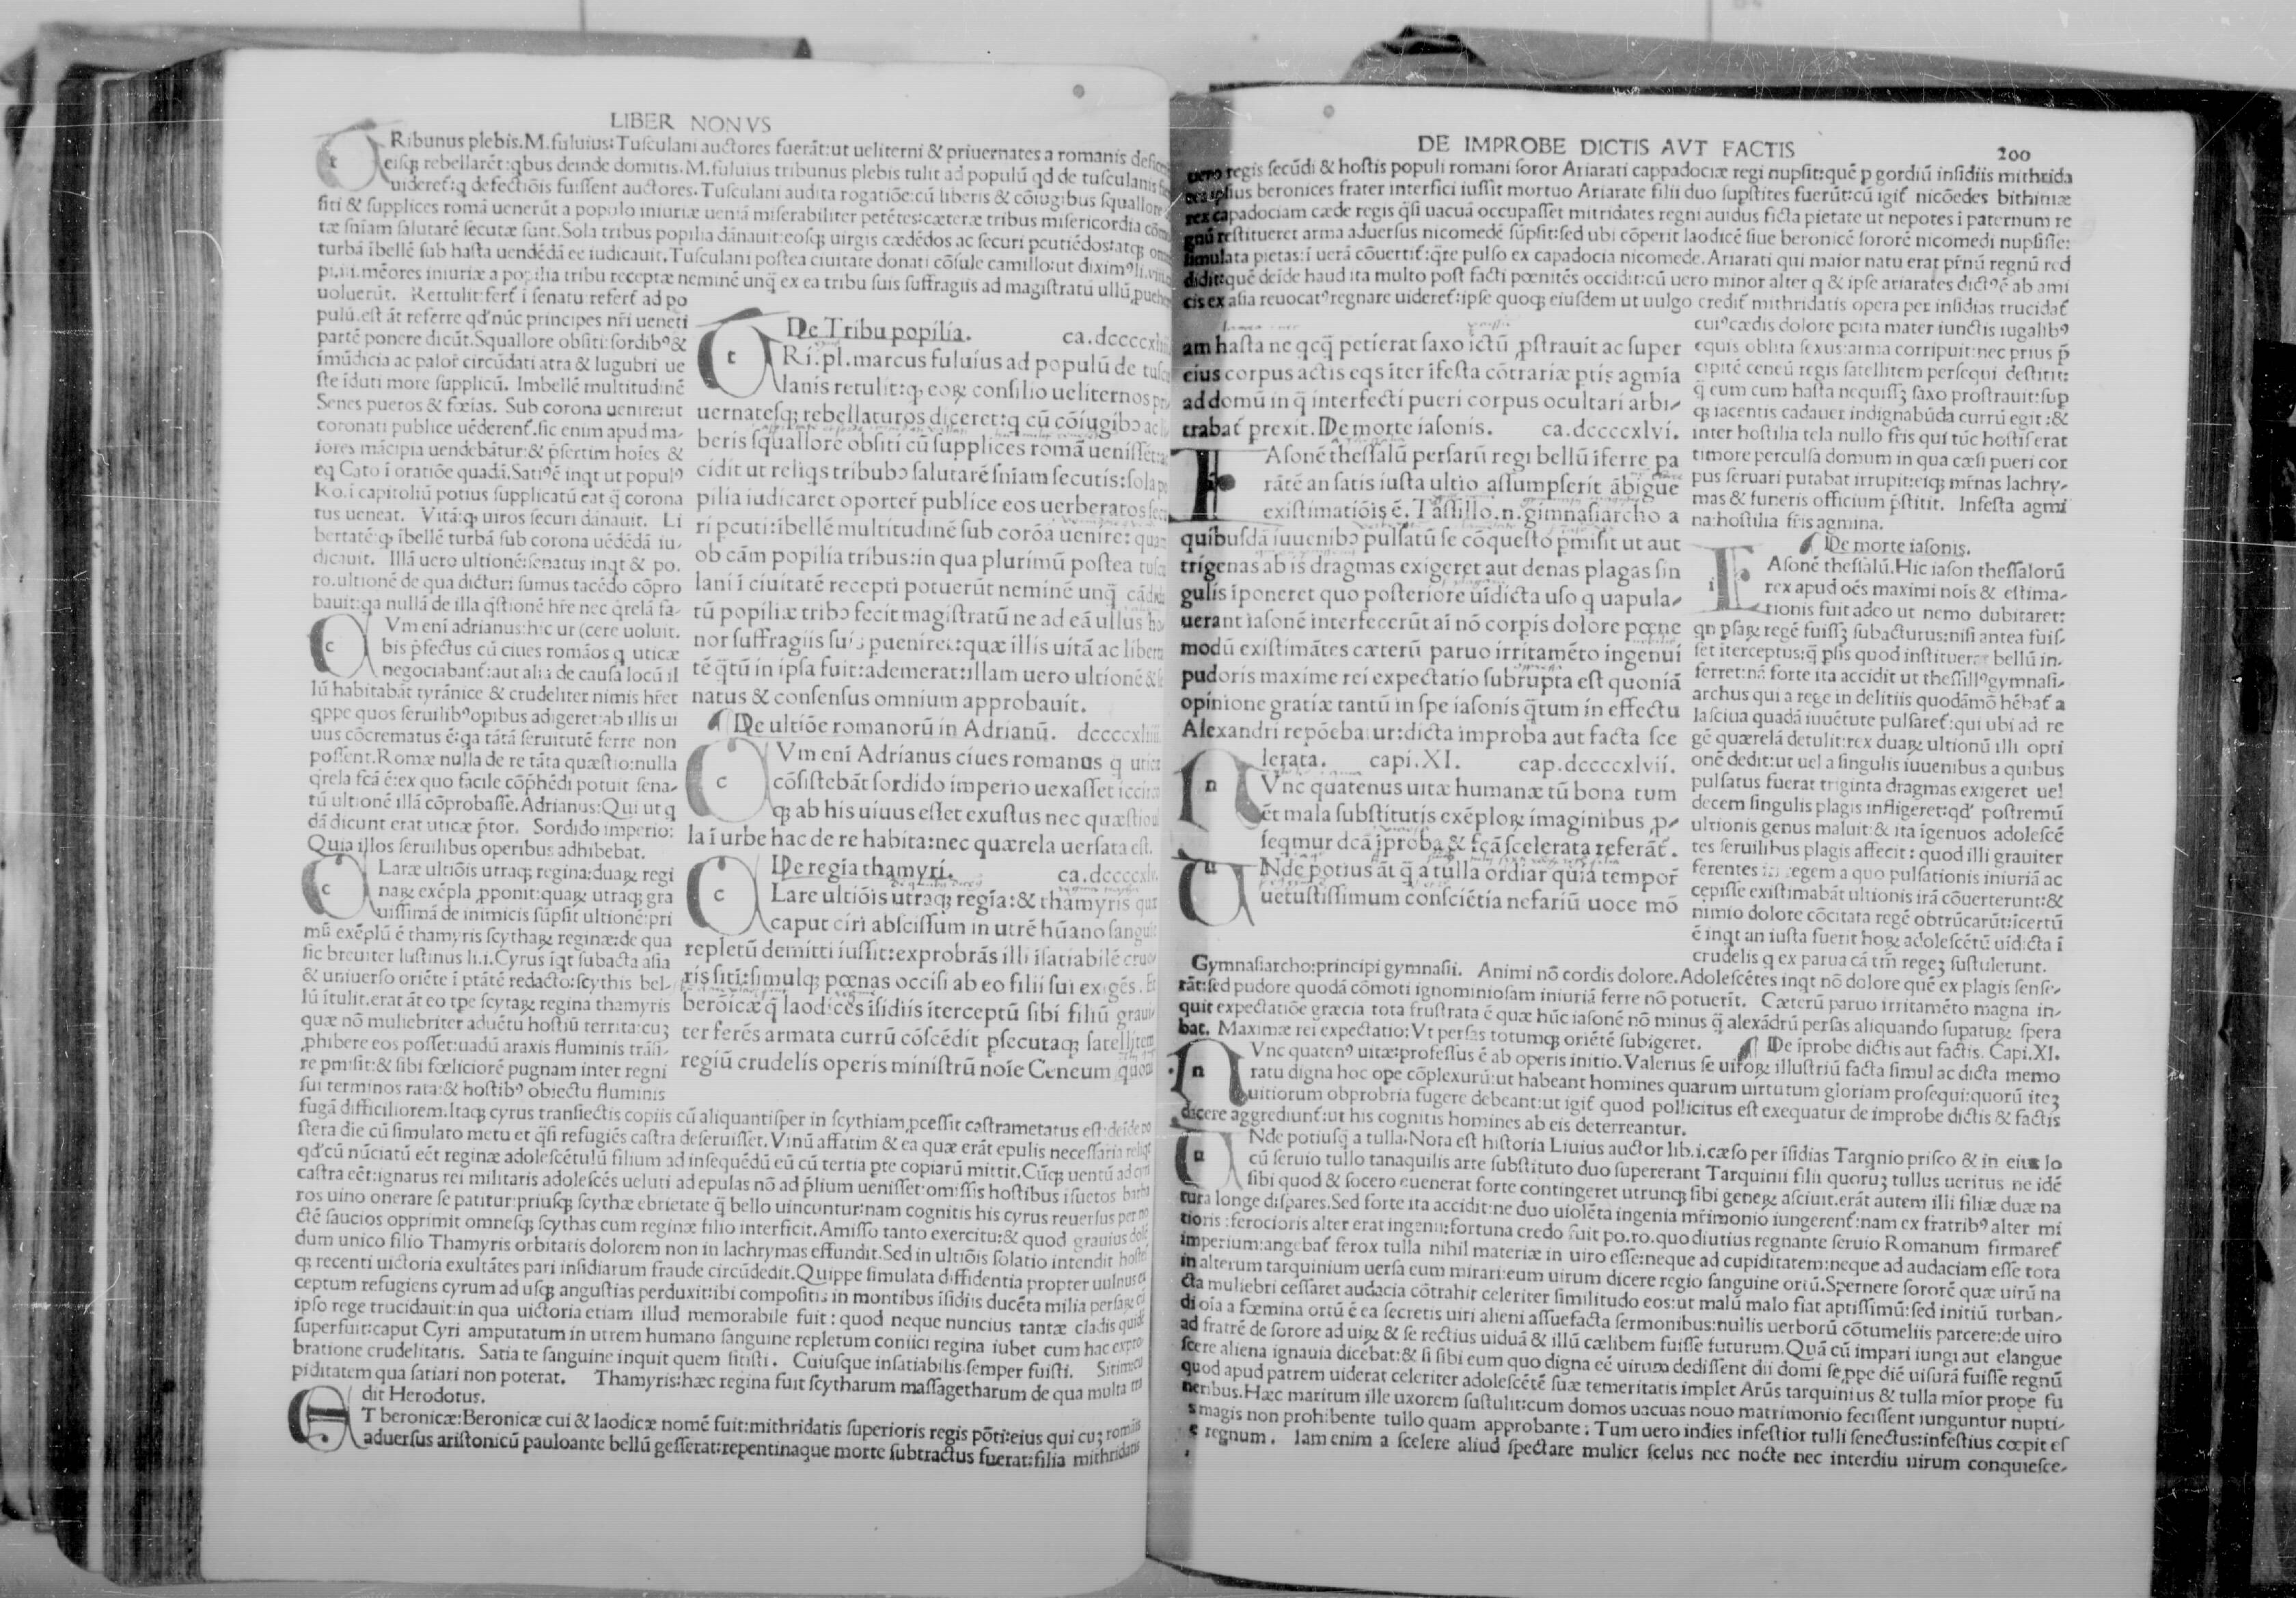 LIBER NONVS
Ribunus plebis.M.fuluius:Tusculani auctores fuerāt:ut ueliterni & priuernates a romanis
eisq; rebellarēt:qbus deinde domitis.M.fuluius tribunus plebis tulit ad populū qd de tusculanis
uideret:q defectiōis fuissent auctores.Tusculani audita rogatiōe:cū liberis & cōiugibus squallore
siti & supplices romā uenerūt a populo iniuriæ ueniā miserabiliter petētes:cæteræ tribus misericordia
tæ sniam salutarē secutæ sunt.Sola tribus popilia dānauit:eosq; uirgis cædēdos ac securi pcutiēdos:atq;
turbā ībellē sub hasta uendēdā ee iudicauit.Tusculani postea ciuitate donati cōsule camillo:ut diximꝰ li.viii.
pi.iii.mēores iniuriæ a popilia tribu receptæ neminē unq̄ ex ea tribu suis suffragiis ad magistratū ullū
uoluerūt. Rettulit:fert i senatu refert ad po
pulū.est āt referre qd' nūc principes nr̄i ueneti
partē ponere dicūt.Squallore obsiti:sordibꝰ &
īmūdicia ac palor̄ circūdati atra & lugubri ue
ste īduti more supplicū. Imbellē multitudinē
Senes pueros & fœias. Sub corona uenire:ut
coronati publice uēderent.sic enim apud ma-
iores mācipia uendebātur:& p̄sertim hoīes &
eq Cato ī oratiōe quadā.Satiꝰē inqt ut populꝰ
Ro.ī capitoliū potius supplicatū eat q̄ corona
tus ueneat. Vitā:q; uiros securi dānauit. Li
bertatē:q; ībellē turbā sub corona uēdēdā iu-
dicauit. Illā uero ultionē:senatus inqt & po.
ro.ultionē de qua dicturi sumus tacēdo cōpro
bauit:qa nullā de illa q̄stionē hr̄e nec q̄relā fa-
Vm enī adrianus:hic ur (cere uoluit.
bis p̄fectus cū ciues romāos q uticæ
negociabant:aut alia de causa locū il
lū habitabāt tyrānice & crudeliter nimis hr̄et
qppe quos seruilibꝰopibus adigeret:ab illis ui
uus cōcrematus ē:qa tātā seruitutē ferre non
possent.Romæ nulla de re tāta quæstio:nulla
q̄rela fcā ē:ex quo facile cōp̄hēdi potuit sena-
tū ultionē illā cōprobasse.Adrianus:Qui ut q
dā dicunt erat uticæ p̄tor. Sordido imperio:
Quia illos seruilibus operibus adhibebat.
Laræ ultiōis utraq; regina:duaꝝ regi
naꝝ exēpla ꝓponit:quaꝝ utraq; gra
uissimā de inimicis sūpsit ultionē:pri
mū exēplū ē thamyris scythaꝝ reginæ:de qua
sic breuiter Iustinus li.i.Cyrus īqt subacta asia
& uniuerso oriēte ī ptātē redacto:scythis bel-
lū ītulit.erat āt eo tpe scytaꝝ regina thamyris
quæ nō muliebriter aduētu hostiū territa:cuꝫ
ꝓhibere eos posset:uadū araxis fluminis trāsi-
re pmisit:& sibi fœliciorē pugnam inter regni
sui terminos rata:& hostibꝰ obiectu fluminis
fugā difficiliorem.Itaq; cyrus transiectis copiis cū aliquantisper in scythiam ꝓcessit castrametatus est:deīde
stera die cū simulato metu et q̄si refugiēs castra deseruisset.Vinū affatim & ea quæ erāt epulis necessaria
qd'cū nūciatū eēt reginæ adolescētulū filium ad insequēdū eū cū tertia pte copiarū mittit.Cūq; uentū ad
castra eēt:ignarus rei militaris adolescēs ueluti ad epulas nō ad p̄lium uenisset:omissis hostibus īsuetos
ros uino onerare se patitur:priusq; scythæ ebrietate q̄ bello uincuntur:nam cognitis his cyrus reuersus per
ctē saucios opprimit omnesq; scythas cum reginæ filio interficit.Amisso tanto exercitu:& quod grauius
dum unico filio Thamyris orbitatis dolorem non in lachrymas effundit.Sed in ultiōis solatio intendit
q; recenti uictoria exultātes pari insidiarum fraude circūdedit.Quippe simulata diffidentia propter uulnus
ceptum refugiens cyrum ad usq; angustias perduxit:ibi compositis in montibus īsidiis ducēta milia persaꝝ
ipso rege trucidauit:in qua uictoria etiam illud memorabile fuit : quod neque nuncius tantæ cladis
superfuit:caput Cyri amputatum in utrem humano sanguine repletum coniici regina iubet cum hac expro
bratione crudelitatis. Satia te sanguine inquit quem sitisti . Cuiusque insatiabilis semper fuisti. Sitim:cu
piditatem qua satiari non poterat. Thamyris:hæc regina fuit scytharum massagetharum de qua multa
dit Herodotus.
T beronicæ:Beronicæ cui & laodicæ nomē fuit:mithridatis superioris regis pōti:eius qui cuꝫ romāis
aduersus aristonicū pauloante bellū gesserat:repentinaque morte subtractus fuerat:filia mithridatis
De Tribu popilia.
Ri. pl.marcus fuluius ad populū de
lanis retulit:q; eoꝝ consilio ueliternos
uernatesq; rebellaturos diceret:q cū cōiugibꝰ ac
beris squallore obsiti cū supplices romā uenissēt
cidit ut reliqs tribubꝰ salutarē sniam secutis:sola
pilia iudicaret oporter̄ publice eos uerberatos
ri pcuti:ībellē multitudinē sub corōa uenire:
ob cām popilia tribus:in qua plurimū postea
lani ī ciuitatē recepti potuerūt neminē unq̄
tū popiliæ tribꝰ fecit magistratū ne ad eā ullus ho
nor suffragiis suis pueniret:quæ illis uitā ac
tē q̄tū in ipsa fuit:ademerat:illam uero ultionē &
natus & consensus omnium approbauit.
De ultiōe romanorū in Adrianū.
Vm enī Adrianus ciues romanus q
cōsistebāt sordido imperio uexasset
q; ab his uiuus esset exustus nec
la ī urbe hac de re habita:nec quærela uersata est.
De regia thamyri.
Lare ultiōis utraq; regia:& thamyris
caput ciri abscissum in utrē hūano
repletū demitti iussit:exprobrās illi īsatiabilē
ris sitī:simulq; pœnas occisi ab eo filii sui exigēs. Et
berōicæ q̄ laodicēs īsidiis īterceptū sibi filiū
ter ferēs armata currū cōscēdit psecutaq; satellitem
regiū crudelis operis ministrū noīe Ceneum
DE IMPROBE DICTIS AVT FACTIS 200
uero regis secūdi & hostis populi romani soror Ariarati cappadociæ regi nupsit:quē p gordiū insidiis mithrida
ipsius beronices frater interfici iussit mortuo Ariarate filii duo supstites fuerūt:cū igit nicōedes bithiniæ
rex capadociam cæde regis q̄si uacuā occupasset mitridates regni auidus ficta pietate ut nepotes ī paternum re
gnū restitueret arma aduersus nicomedē sūpsit:sed ubi cōperit laodicē siue beronicē sororē nicomedi nupsisse:
simulata pietas:ī uerā cōuertit:q̄re pulso ex capadocia nicomede.Ariarati qui maior natu erat pr̄nū regnū red
didit:quē deīde haud ita multo post facti pœnitēs occidit:cū uero minor alter q & ipse ariarates dictꝰē ab ami
cis ex asia reuocatꝰregnare uideret:ipse quoq; eiusdem ut uulgo credit mithridatis opera per insidias trucidat
am hasta ne qcq̄ petierat saxo ictū ꝓstrauit ac super
eius corpus actis eqs īter īfesta cōtrariæ ptis agmīa
ad domū in q̄ interfecti pueri corpus ocultari arbi-
trabat prexit. De morte iasonis. ca.dcccc xlvi.
Asonē thessalū persarū regi bellū īferre pa
rātē an satis iusta ultio assumpserit ābigue
existimatiōis ē. Tassillo.n.gimnasiarcho a
quibusdā iuuenibꝰ pulsatū se cōquesto p̄misit ut aut
trigenas ab is dragmas exigeret aut denas plagas sin
gulis īponeret quo posteriore uīdicta uso q uapula-
uerant iasonē interfecerūt aī nō corpis dolore pœne
modū existimātes cæterū paruo irritamēto ingenui
pudoris maxime rei expectatio subrupta est quoniā
opinione gratiæ tantū in spe iasonis q̄tum in effectu
Alexandri repōebatur:dicta improba aut facta sce
lerata. capi.XI. cap.dccccxlvii.
Vnc quatenus uitæ humanæ tū bona tum
ēt mala substitutis exēploꝝ imaginibus ꝓ-
seqmur dcā īproba & fcā scelerata referāt.
Nde potius āt q̄ a tulla ordiar quia tempor̄
uetustissimum consciētia nefariū uoce mō
cuiꝰcædis dolore pcita mater iunctis iugalibꝰ
equis oblita sexus:arma corripuit:nec prius p̄
cipitē ceneū regis satellitem persequi destitit:
q̄ eum cum hasta nequissꝫ saxo prostrauit:sup
q; iacentis cadauer indignabūda currū egit :&
inter hostilia tela nullo fr̄is qui tūc hostis erat
timore perculsa domum in qua cæsi pueri cor
pus seruari putabat irrupit:eiq; mr̄nas lachry-
mas & funeris officium p̄stitit. Infesta agmi
na:hostilia fr̄is agmina.
De morte iasonis.
Asonē thessalū.Hic iason thessalorū
rex apud oēs maximi nois & estima-
tionis fuit adeo ut nemo dubitaret:
qn psaꝝ regē fuissꝫ subacturus:nisi antea fuis-
set īterceptus:q̄ psis quod instituerat bellū in-
ferret:nā forte ita accidit ut thessillꝰgymnasi-
archus qui a rege in delitiis quodāmō hēbat a
lasciua quadā iuuētute pulsaret:qui ubi ad re
gē quærelā detulit:rex duaꝝ ultionū illi opti
onē dedit:ut uel a singulis iuuenibus a quibus
pulsatus fuerat triginta dragmas exigeret uel
decem singulis plagis infligeret:qd' postremū
ultionis genus maluit:& ita īgenuos adolescē
tes seruilibus plagis affecit : quod illi grauiter
ferentes in regem a quo pulsationis iniuriā ac
cepisse existimabāt ultionis irā cōuerterunt:&
nimio dolore cōcitata regē obtrūcarūt:īcertū
ē inqt an iusta fuerit hoꝝ adolescētū uīdicta ī
crudelis q ex parua cā tm̄ regeꝫ sustulerunt.
Gymnasiarcho:principi gymnasii. Animi nō cordis dolore.Adolescētes inqt nō dolore quē ex plagis sense-
rāt:sed pudore quodā cōmoti ignominiosam iniuriā ferre nō potuerīt. Cæterū paruo irritamēto magna in-
quit expectatiōe græcia tota frustrata ē quæ hūc iasonē nō minus q̄ alexādrū persas aliquando supatuꝝ spera
bat. Maximæ rei expectatio:Vt persas totumq; oriētē subigeret. De īprobe dictis aut factis. Capi.XI.
Vnc quatenꝰ uitæ:professus ē ab operis initio.Valerius se uiroꝝ illustriū facta simul ac dicta memo
ratu digna hoc ope cōplexurū:ut habeant homines quarum uirtutum gloriam prosequi:quorū iteꝫ
uitiorum obprobria fugere debeant:ut igit quod pollicitus est exequatur de improbe dictis & factis
dicere aggrediunt:ut his cognitis homines ab eis deterreantur.
Nde potiusq̄ a tulla.Nota est historia Liuius auctor lib.i.cæso per īsidias Tarqnio prisco & in eius lo
cū seruio tullo tanaquilis arte substituto duo supererant Tarquinii filii quoruꝫ tullus ueritus ne idē
sibi quod & socero euenerat forte contingeret utrunq; sibi geneꝝ asciuit.erāt autem illi filiæ duæ na
tura longe dispares.Sed forte ita accidit:ne duo uiolēta ingenia mr̄imonio iungerent:nam ex fratribꝰ alter mi
tioris :ferocioris alter erat ingenii:fortuna credo fuit po.ro.quo diutius regnante seruio Romanum firmaret
imperium:angebat ferox tulla nihil materiæ in uiro esse:neque ad cupiditatem:neque ad audaciam esse tota
in alterum tarquinium uersa eum mirari:eum uirum dicere regio sanguine ortū.Spernere sororē quæ uirū na
cta muliebri cessaret audacia cōtrahit celeriter similitudo eos:ut malū malo fiat aptissimū:sed initiū turban-
di oīa a fœmina ortū ē ea secretis uiri alieni assuefacta sermonibus:nullis uerborū cōtumeliis parcere:de uiro
ad fratrē de sorore ad uiꝝ & se rectius uiduā & illū cælibem fuisse futurum.Quā cū impari iungi aut elangue
scere aliena ignauia dicebat:& si sibi eum quo digna eē uirum dedissent dii domi se ꝓpe diē uisurā fuisse regnū
quod apud patrem uiderat celeriter adolescētē suæ temeritatis implet Arūs tarquinius & tulla mīor prope fu
neribus.Hæc maritum ille uxorem sustulit:cum domos uacuas nouo matrimonio fecissent iunguntur nupti-
s magis non prohibente tullo quam approbante : Tum uero indies infestior tulli senectus:infestius cœpit es
e regnum. Iam enim a scelere aliud spectare mulier scelus nec nocte nec interdiu uirum conquiesce-